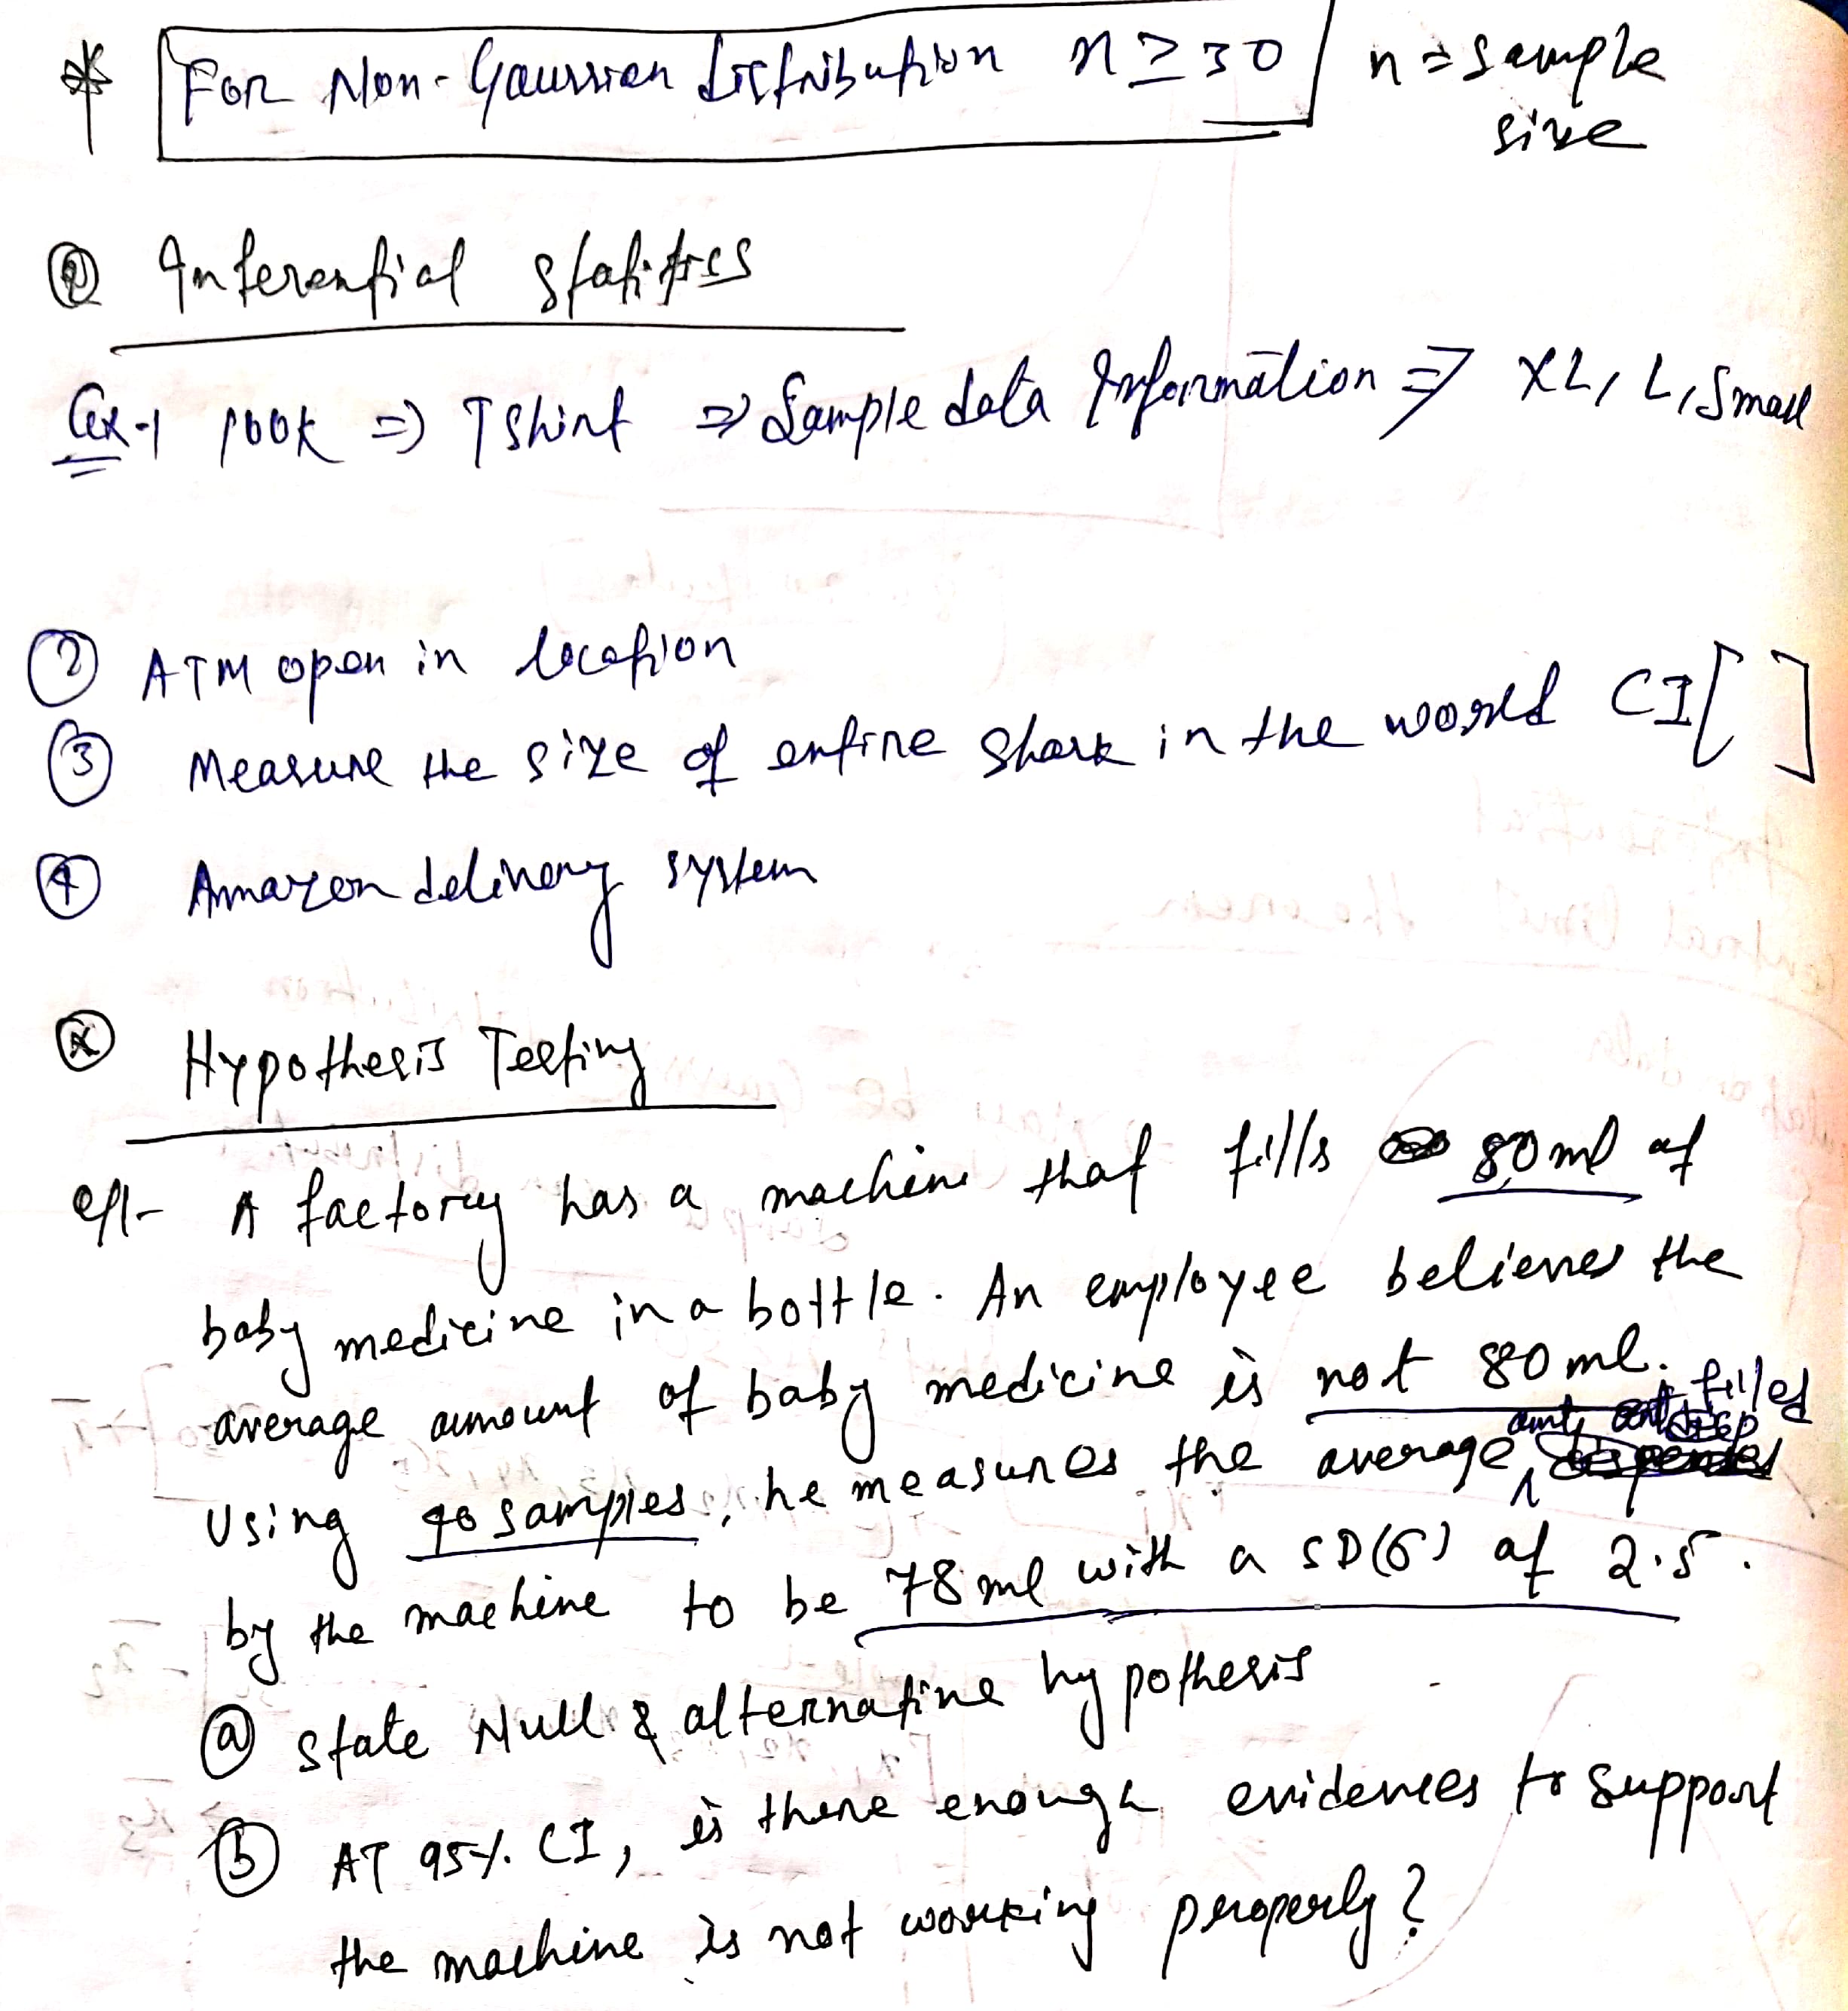 * For Non-Gaussian Distribution n ≥ 30 n = sample
size
Inferential statistics
Ex-1 100k => T Shirt => Sample data Information => XL, L, Small
② ATM open in location
③ Measure the size of entire shark in the world CI [ ]
④ Amazon delivery system
Hypothesis Testing
A factory has a machine that fills 80 ml of
baby medicine in a bottle. An employee believes the
average amount of baby medicine is not 80 ml.
Using 40 samples, he measures the average amt filled
by the machine to be 78 ml with a SD(σ) of 2.5.
ⓐ State Null & alternative hypothesis
ⓑ AT 95% CI, is there enough evidences to support
the machine is not working properly?